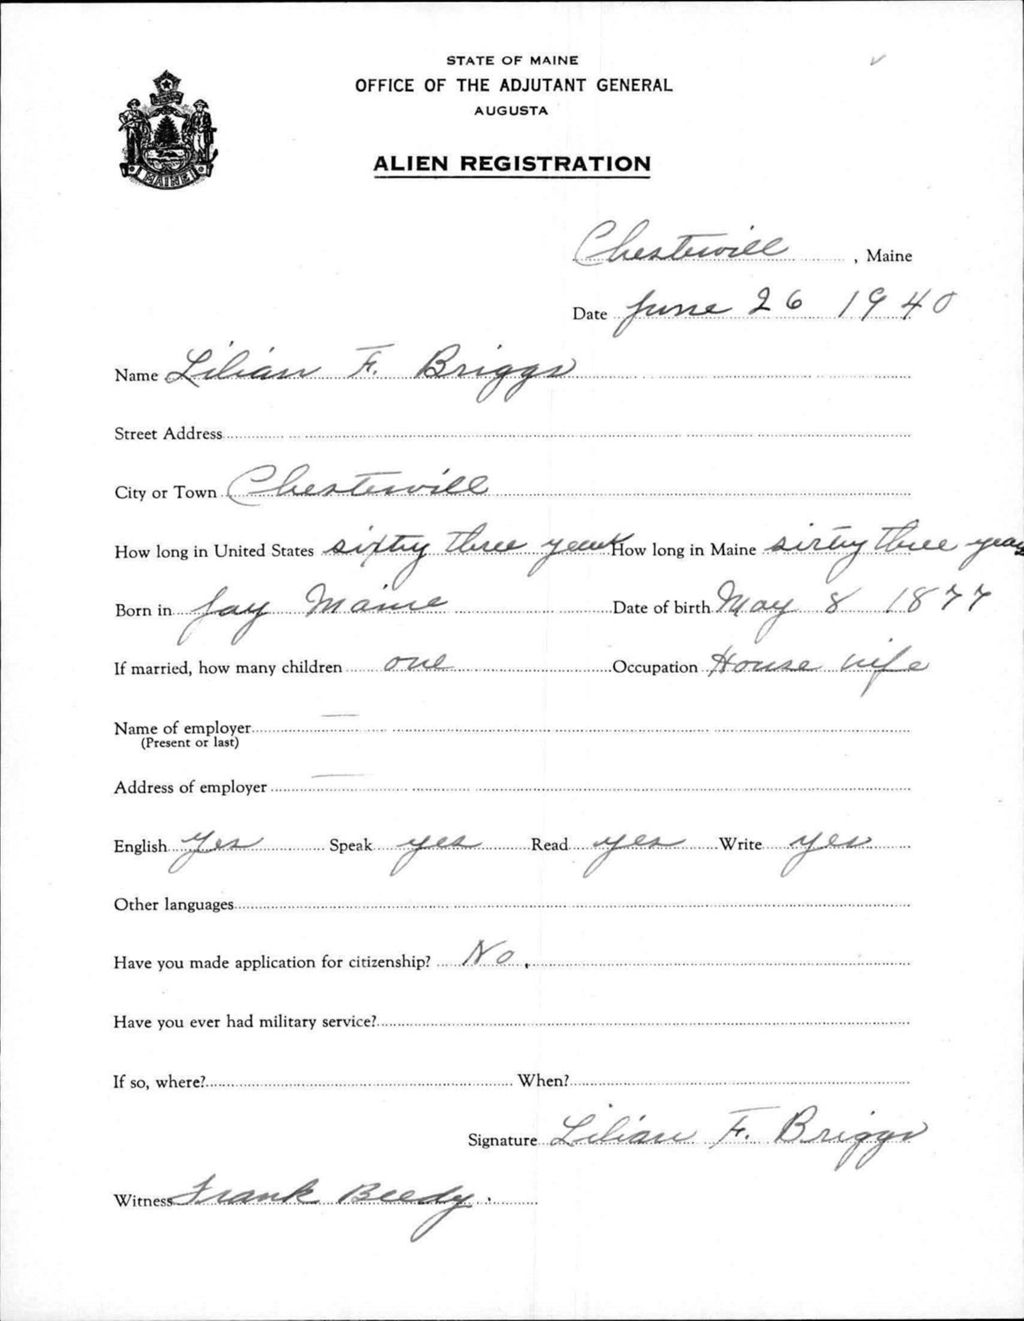 STATE OF MAINE
OFFICE OF THE ADJUTANT GENERAL
AUGUSTA
ALIEN REGISTRATION
MAINE
Chesterville, Maine
Date June 26 1940
Name Lilian F. Briggs
Street Address
City or Town Chesterville
How long in United States sixty three years How long in Maine sixty three years
Born in Jay Maine Date of birth May 8 1877
If married, how many children one Occupation House wife
Name of employer —
(Present or last)
Address of employer —
English Yes Speak yes Read yes Write yes
Other languages
Have you made application for citizenship? No.
Have you ever had military service?
If so, where? When?
Signature Lilian F. Briggs
Witness Frank Beedy.